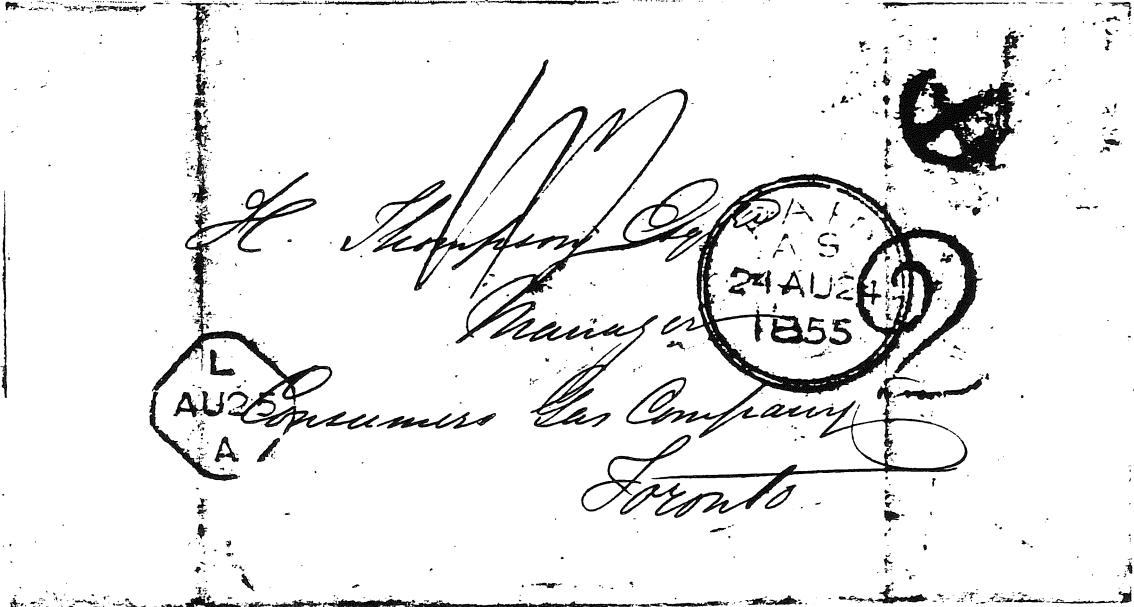 H. Thompson Esqre
Manager
Consumers Gas Company
Toronto
PAID
AS
24 AU 24
1855
2
L
AU25
A